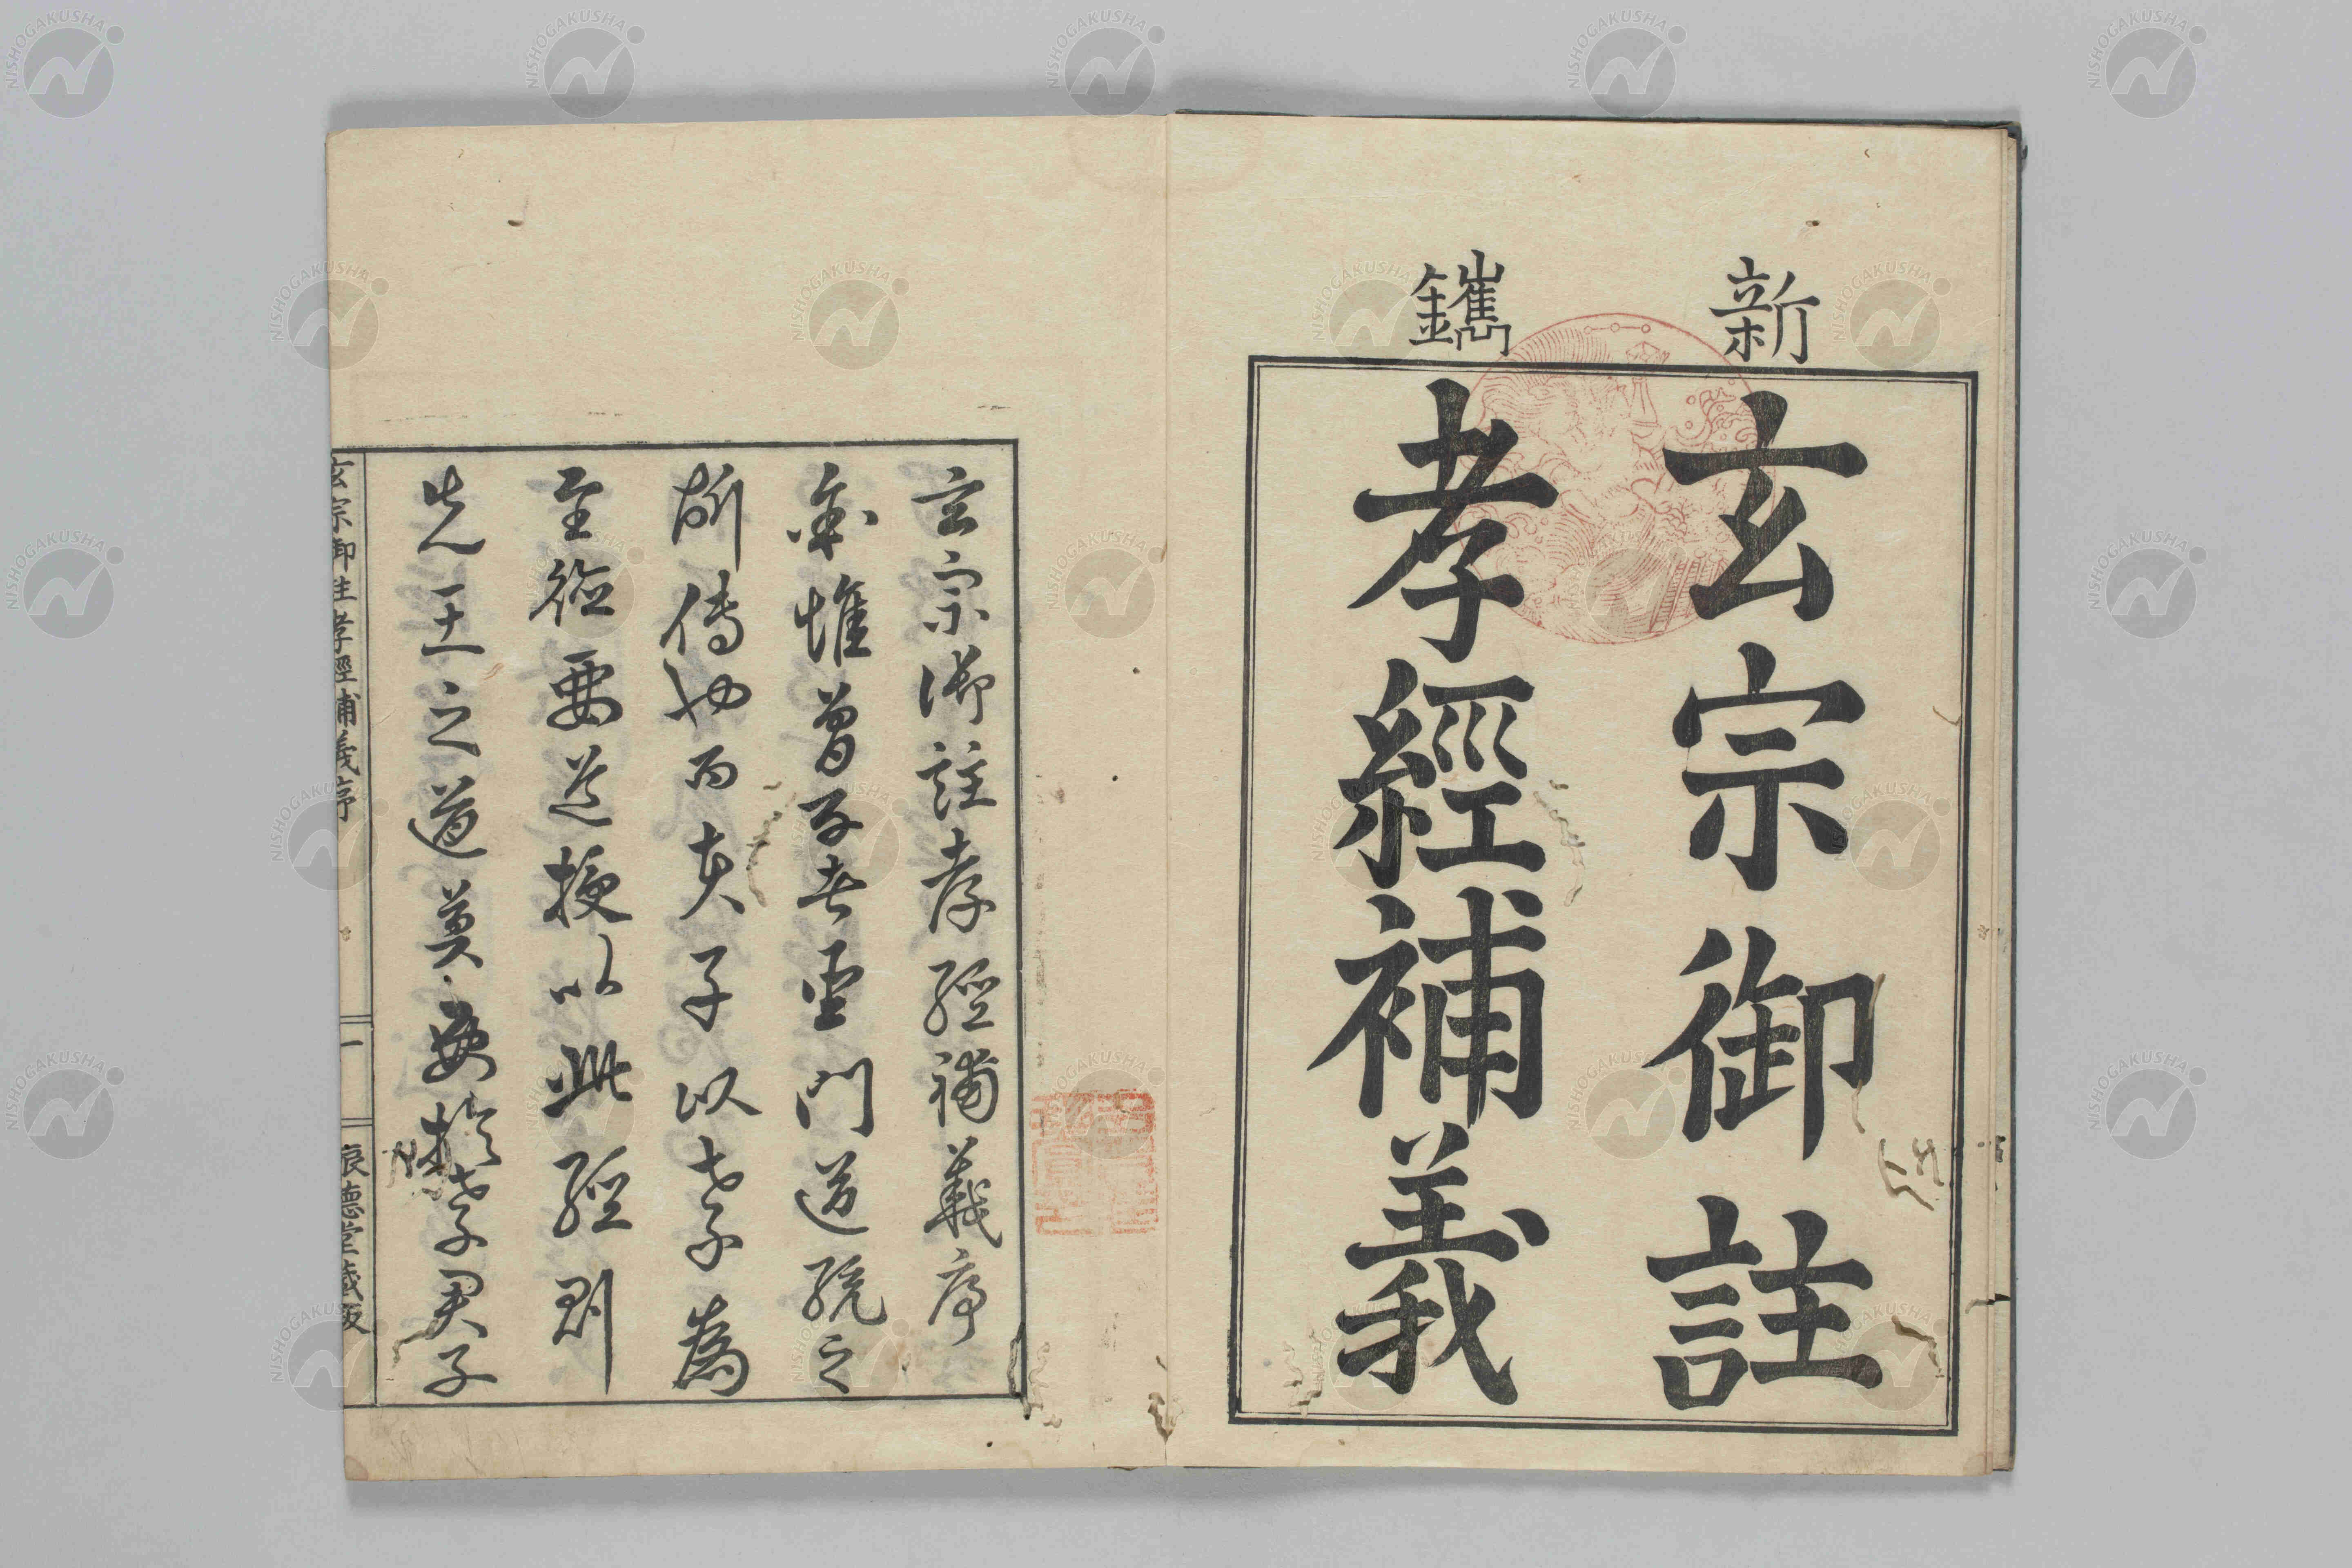 新鐫
玄宗御註
孝經補義
玄宗御註孝經補義序
余惟曾子者聖門道統之
所傳也而夫子以孝為
至德要道授以此經則
先王之道莫要於孝君子
玄宗御註孝經補義序
一
德堂藏版
NISHOGAKUSHA